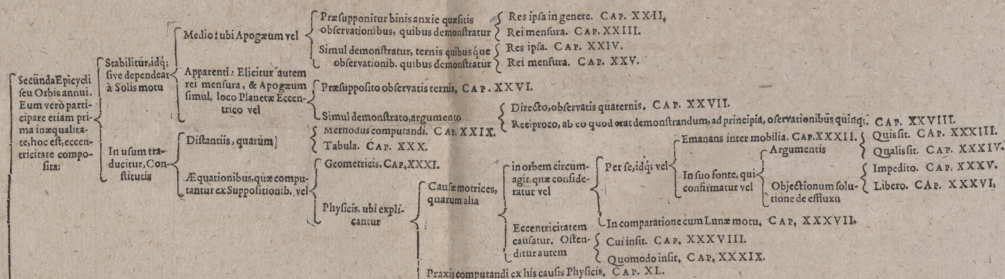 Secunda Epicycli
seu Orbis annui.
Eum verò parti-
cipare etiam prima inæqualita-
te, hoc est, eccen-
tricitate compo-
sita:
Stabilitur, idq;
sive dependeat
à Solis motu
Medio: ubi Apogæum vel
Præsupponitur binis anxie quæsitis
observationibus, quibus demonstratur
Res ipsa in genere. CAP. XXII,
Rei mensura. CAP. XXIII.
Simul demonstratur, ternis quibusque
observationib. quibus demonstratur
Res ipsa. CAP. XXIV.
Rei mensura. CAP. XXV.
Apparenti: Elicitur autem
rei mensura, & Apogæum
simul, loco Planetæ Eccen-
trico vel
Præsupposito observatis ternis, CAP. XXVI.
Simul demonstrato, argumento
Directo, observatis quaternis, CAP. XXVII.
Reciproco, ab eo quod erat demonstrandum, ad principia, observationibus quinq;. CAP. XXVIII.
In usum tra-
ducitur, Con-
stitutis
Distantiis, quarum
Methodus computandi. CAP. XXIX.
Tabula. CAP. XXX.
Æquationibus, quæ compu-
tantur ex Suppositionib. vel
Geometricis, CAP. XXXI.
Physicis, ubi expli-
cantur
Causæ motrices,
quarum alia
in orbem circum-
agit. quæ conside-
ratur vel
Per se, idq; vel
Emanans inter mobilia. CAP. XXXII.
In suo fonte, qui
confirmatur vel
Argumentis
Quis sit. CAP. XXXIII.
Qualis sit. CAP. XXXIV.
Objectionum solu-
tione de effluxu
Impedito. CAP. XXXV.
Libero. CAP. XXXVI,
In comparatione cum Lunæ motu, CAP, XXXVII.
Eccentricitatem
causatur. Osten-
ditur autem
Cui insit. CAP. XXXVIII.
Quomodo insit, CAP, XXXIX.
Praxis computandi ex his causis Physicis, CAP. XL.